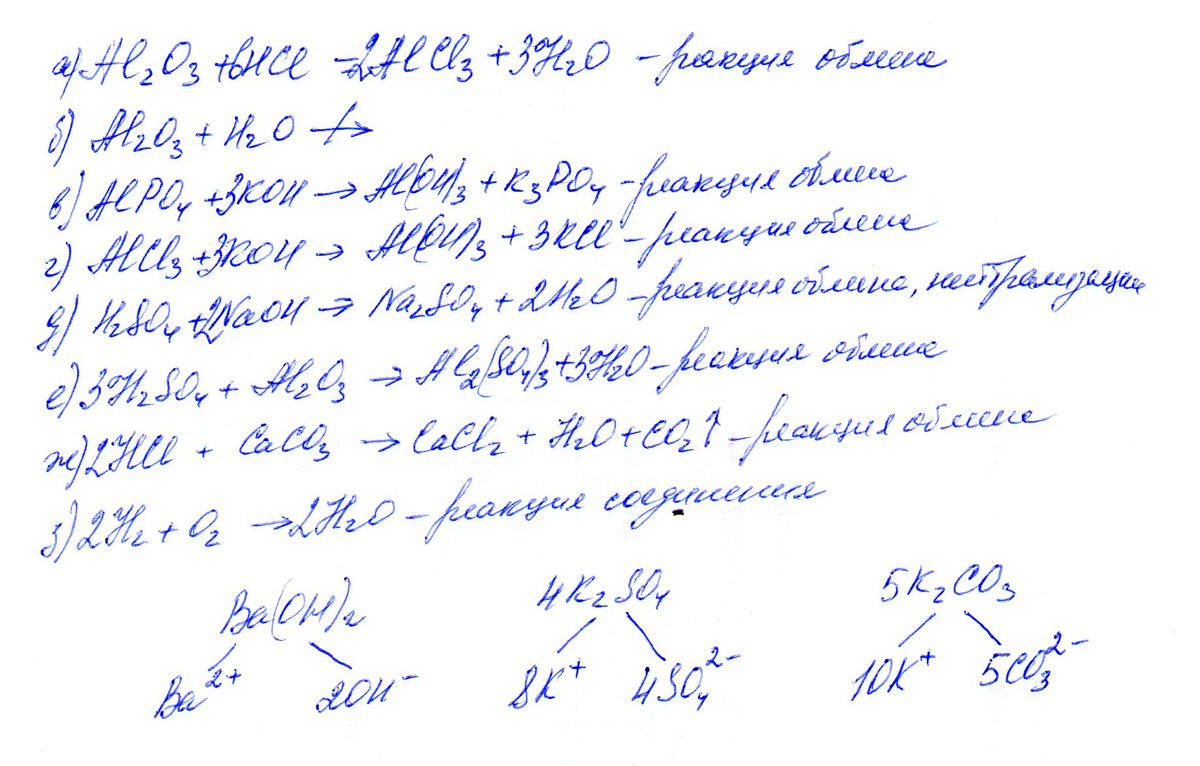 а) Al₂O₃ + 6HCl → 2AlCl₃ + 3H₂O – реакция обмена
б) Al₂O₃ + H₂O ↛
в) AlPO₄ + 3KOH → Al(OH)₃ + K₃PO₄ – реакция обмена
г) AlCl₃ + 3KOH → Al(OH)₃ + 3KCl – реакция обмена
д) H₂SO₄ + 2NaOH → Na₂SO₄ + 2H₂O – реакция обмена, нейтрализации
е) 3H₂SO₄ + Al₂O₃ → Al₂(SO₄)₃ + 3H₂O – реакция обмена
ж) 2HCl + CaCO₃ → CaCl₂ + H₂O + CO₂↑ – реакция обмена
з) 2H₂ + O₂ → 2H₂O – реакция соединения
Ba(OH)₂ 4K₂SO₄ 5K₂CO₃
Ba²⁺ 2OH⁻ 8K⁺ 4SO₄²⁻ 10K⁺ 5CO₃²⁻